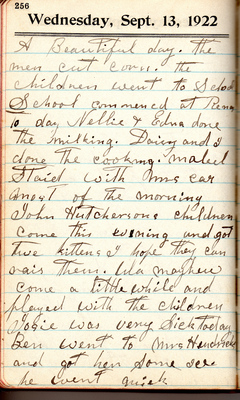 256
Wednesday, Sept. 13, 1922
A Beautiful day. the
men cut corn. the
children went to School
School commenced at
to day Nellie & Edna done
the milking. Daisy and I
done the cooking. Mabel
Staid with Mrs car
most of the morning
John Hutchersons children
come this evening and got
two kittens I hope they can
rais them. Ula mayhew
come a little while and
played with the children
Josie was very Sick today
Ben went to Mrs
and got her some
he went quick